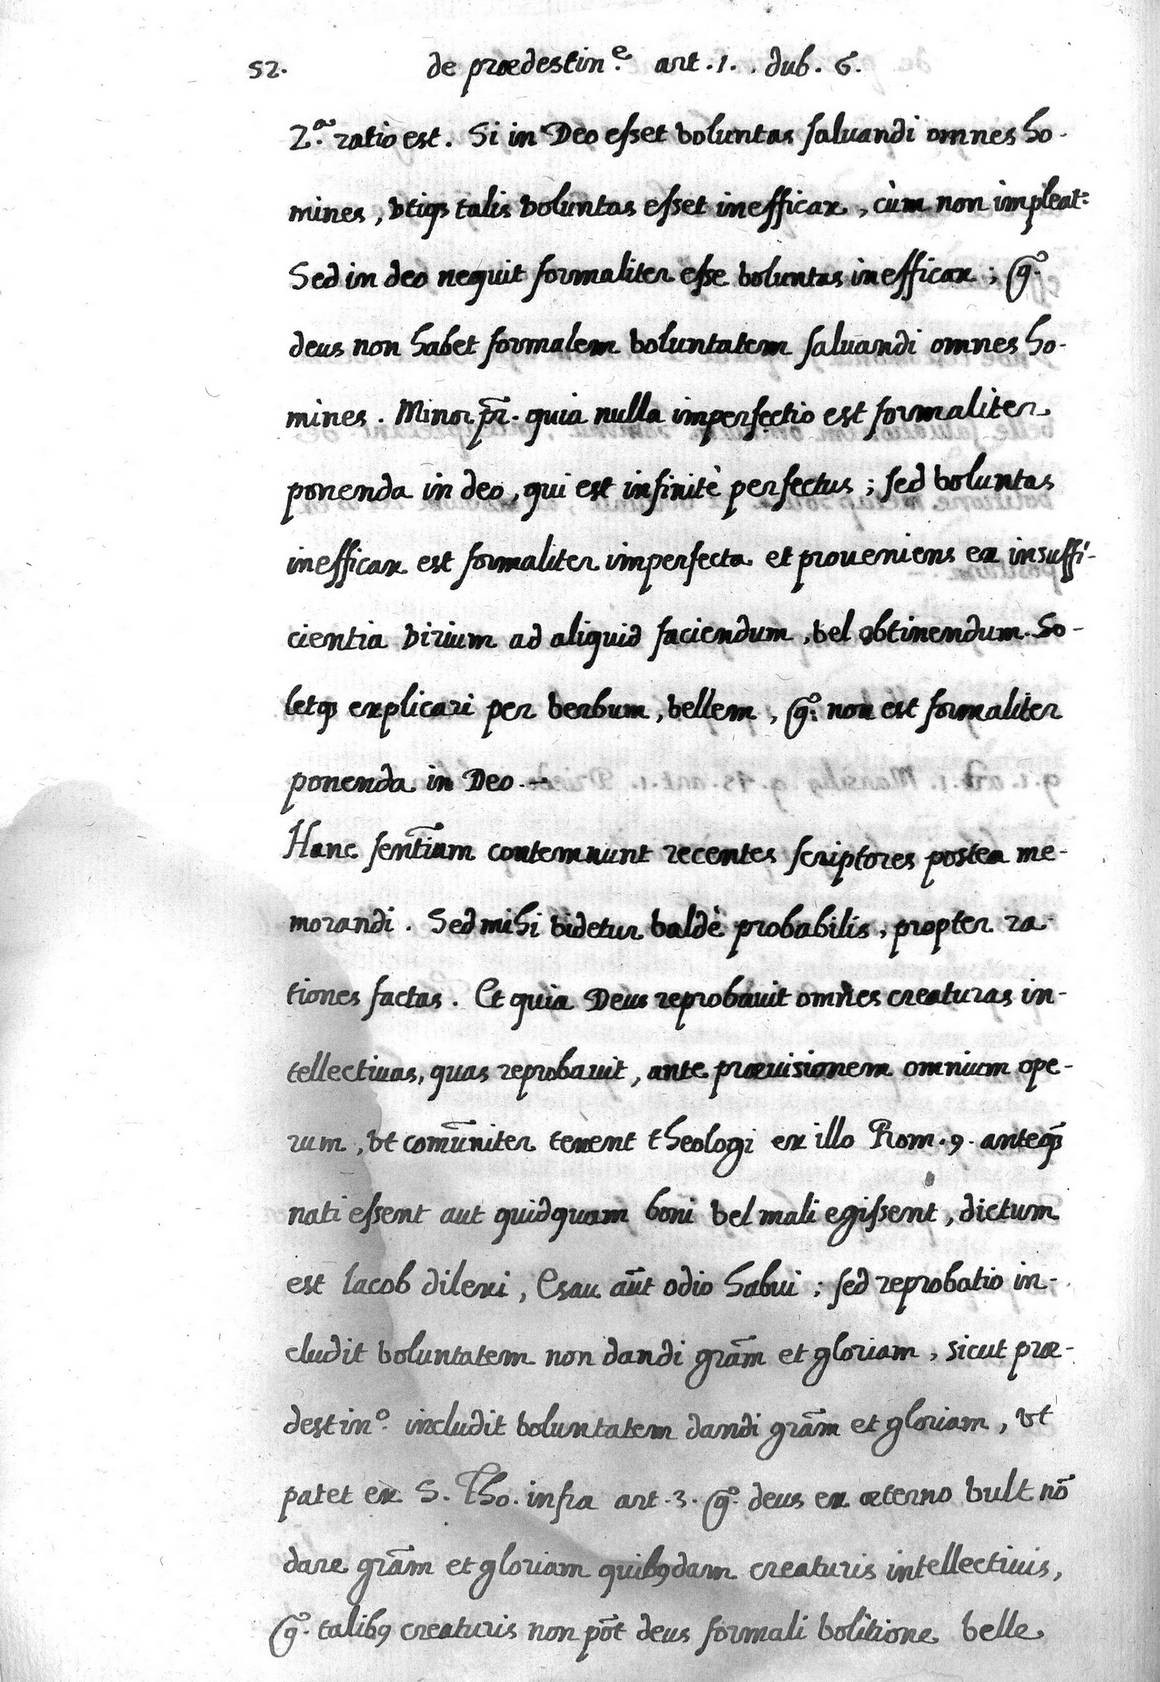 52. de prædestin.ᵉ art.1. dub. 6.
2.ᵃ ratio est. Si in Deo esset voluntas saluandi omnes ho-
mines, vtiqȝ talis voluntas esset inefficax, cùm non impleat:
Sed in deo nequit formaliter esse voluntas inefficax; gͦ.
deus non habet formalem voluntatem saluandi omnes ho-
mines. Minor pr̃. quia nulla imperfectio est formaliter
ponenda in deo, qui est infinitè perfectus; sed voluntas
inefficax est formaliter imperfecta et proueniens ex insuffi-
cientia virium ad aliquid faciendum, vel obtinendum. So-
letqȝ explicari per verbum, vellem, gͦ. non est formaliter
ponenda in Deo. —
Hanc sent̃iam contemnunt recentes scriptores postea me-
morandi. Sed mihi videtur valdè probabilis, propter ra-
tiones factas. Et quia Deus reprobauit omnes creaturas in-
tellectiuas, quas reprobauit, ante præuisionem omnium ope-
rum, vt com̃uniter tenent theologi ex illo Rom. 9. anteq̃
nati essent aut quidquam boni vel mali egissent, dictum
est Iacob dilexi, Esau aũt odio habui; sed reprobatio in-
cludit voluntatem non dandi gr̃am et gloriam, sicut præ-
destin.ᵒ includit voluntatem dandi gr̃am et gloriam, vt
patet ex S. Tho. infra art. 3. gͦ. deus ex æterno vult nõ
dare gr̃am et gloriam quibꝯdam creaturis intellectiuis,
gͦ. talibꝯ creaturis non põt deus formali volitione velle